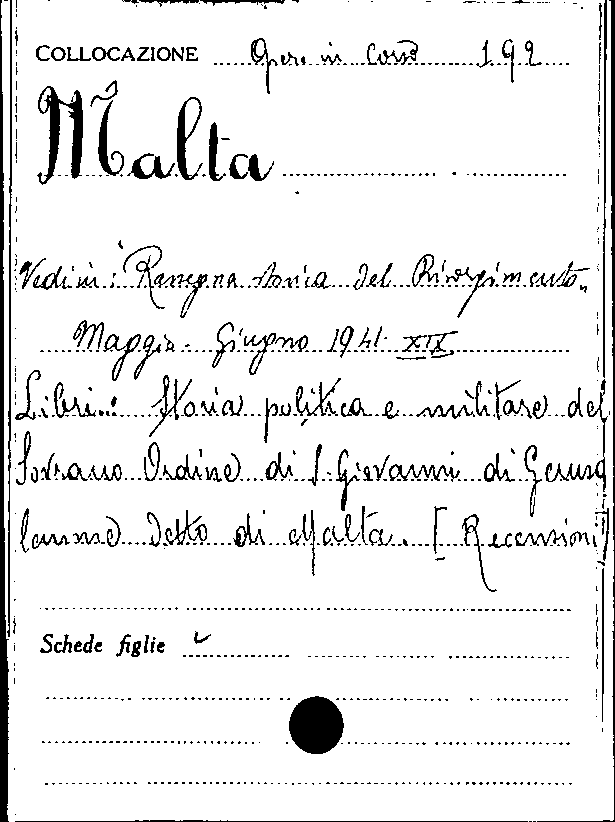 COLLOCAZIONE Opere in corso 192
Malta
Vedi in: "Rassegna storica del Risorgimento"
Maggio - Giugno 1941 XIX
Libri: Storia politica e militare del
Sovrano Ordine di S. Giovanni di Gerusa
lemme detto di Malta. [Recensioni]
Schede figlie